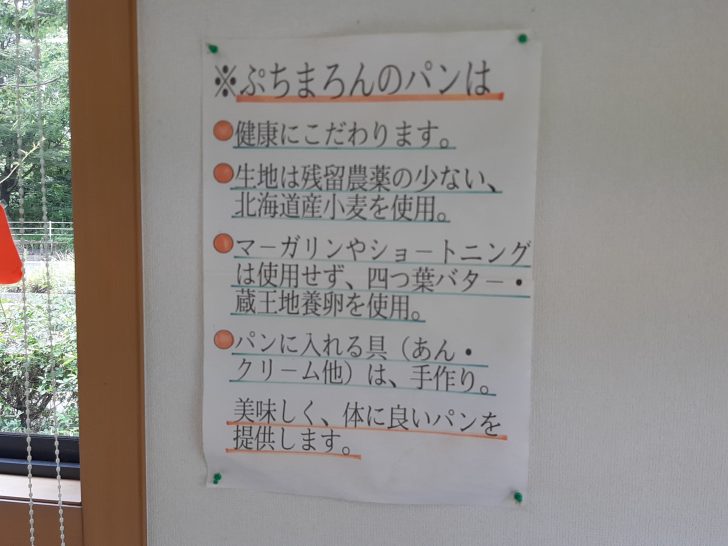 ※ぷちまろんのパンは
●健康にこだわります。
●生地は残留農薬の少ない、
北海道産小麦を使用。
●マーガリンやショートニング
は使用せず、四つ葉バター・
蔵王地養卵を使用。
●パンに入れる具（あん・
クリーム他）は、手作り。
美味しく、体に良いパンを
提供します。